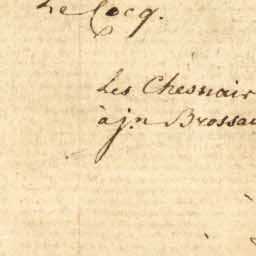 Le Cocq.
Les Chesnair
à jn Brossa